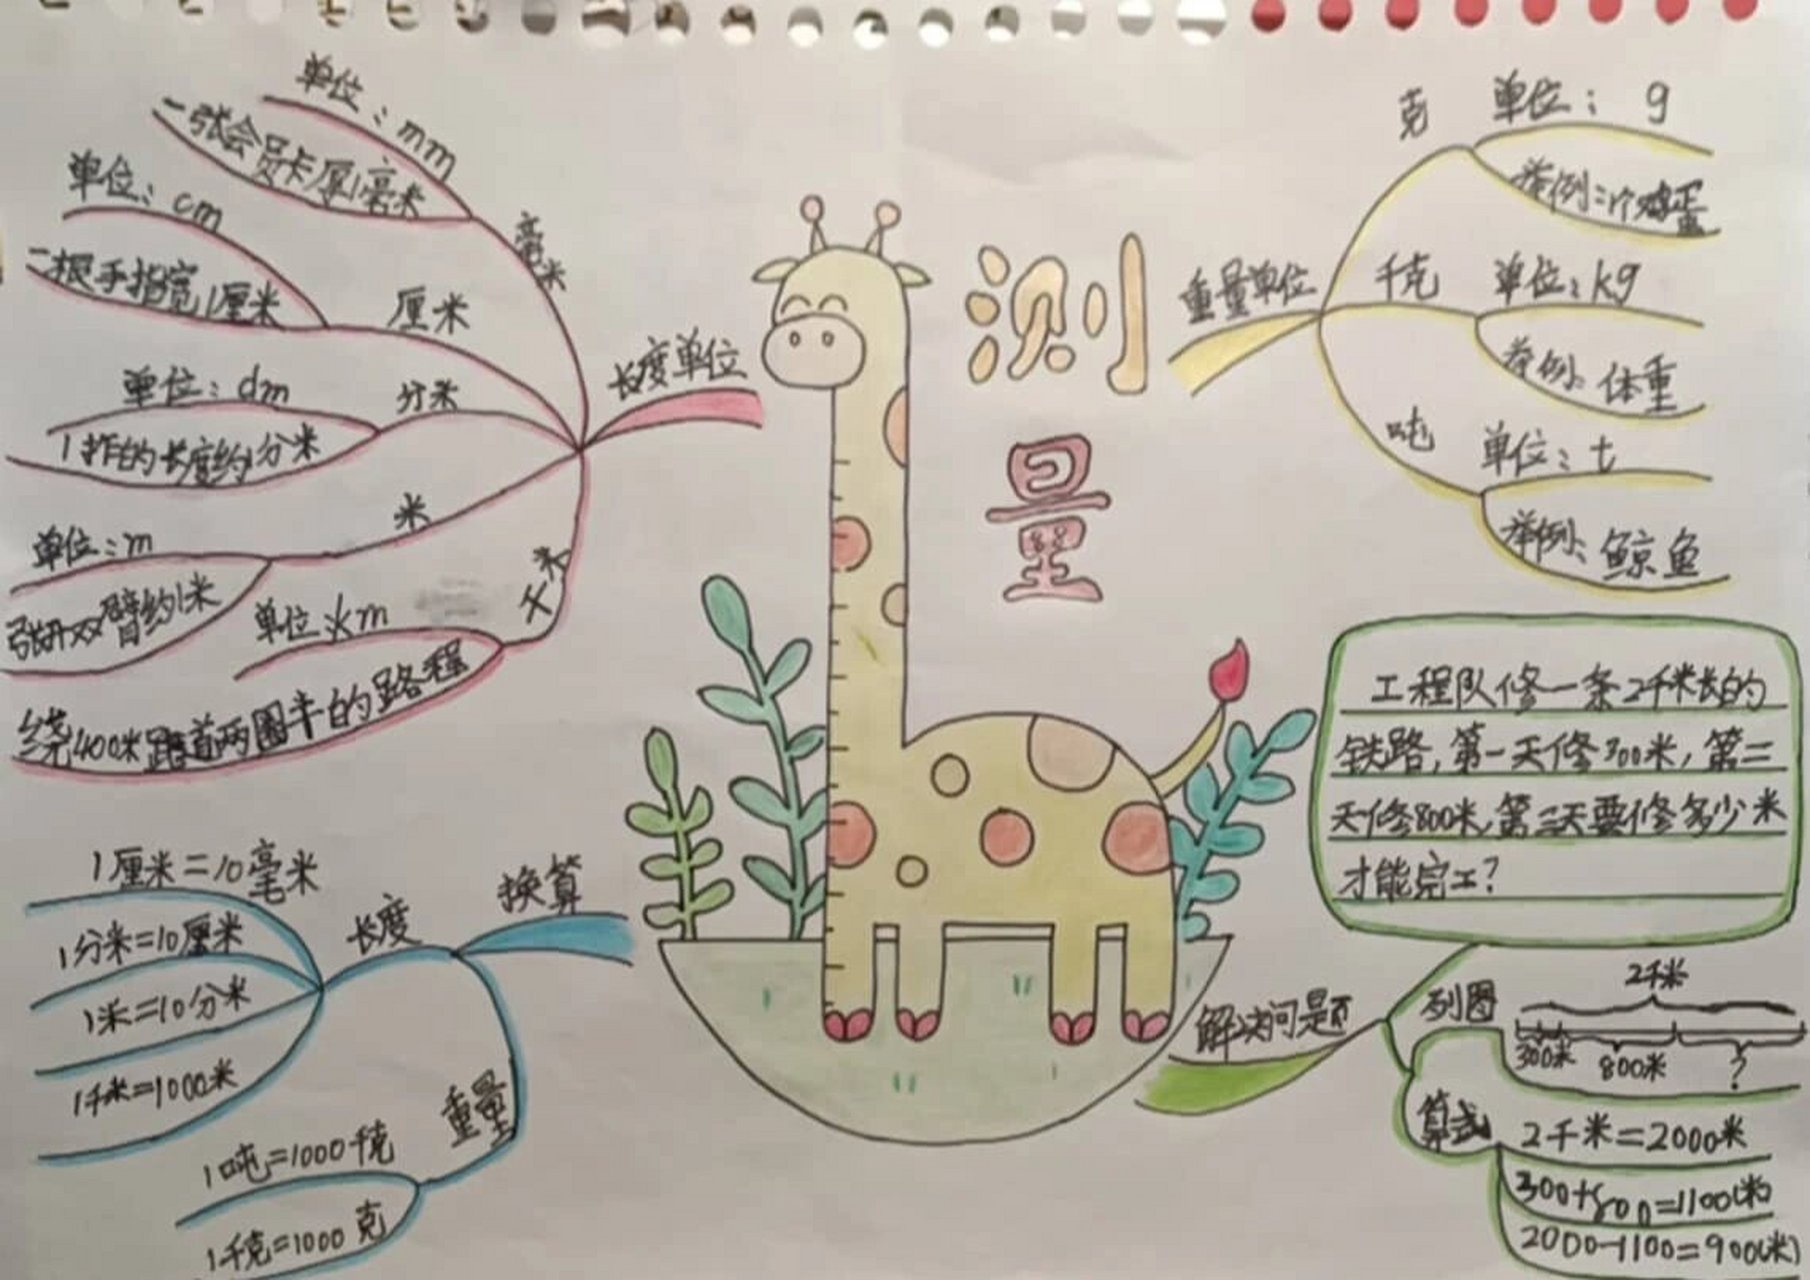 测
量
长度单位
毫米
单位：mm
一张会员卡厚1毫米
厘米
单位：cm
一根手指宽1厘米
分米
单位：dm
1拃的长度约1分米
米
单位：m
张开双臂约1米
千米
单位：km
绕400米跑道两圈半的路程
换算
长度
1厘米=10毫米
1分米=10厘米
1米=10分米
1千米=1000米
重量
1吨=1000千克
1千克=1000克
重量单位
克
单位：g
举例：1个鸡蛋
千克
单位：kg
举例：体重
吨
单位：t
举例：鲸鱼
解决问题
工程队修一条2千米长的
铁路，第一天修300米，第二
天修800米，第三天要修多少米
才能完工？
列图
2千米
300米 800米 ?
算式
2千米=2000米
300+800=1100(米)
2000-1100=900(米)